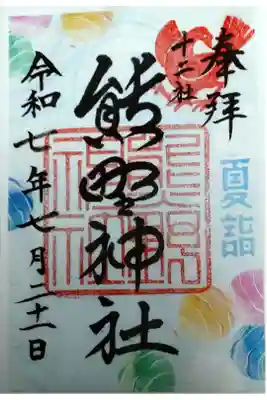 奉拝
十二社
夏詣
熊野神社
令和七年七月二十一日